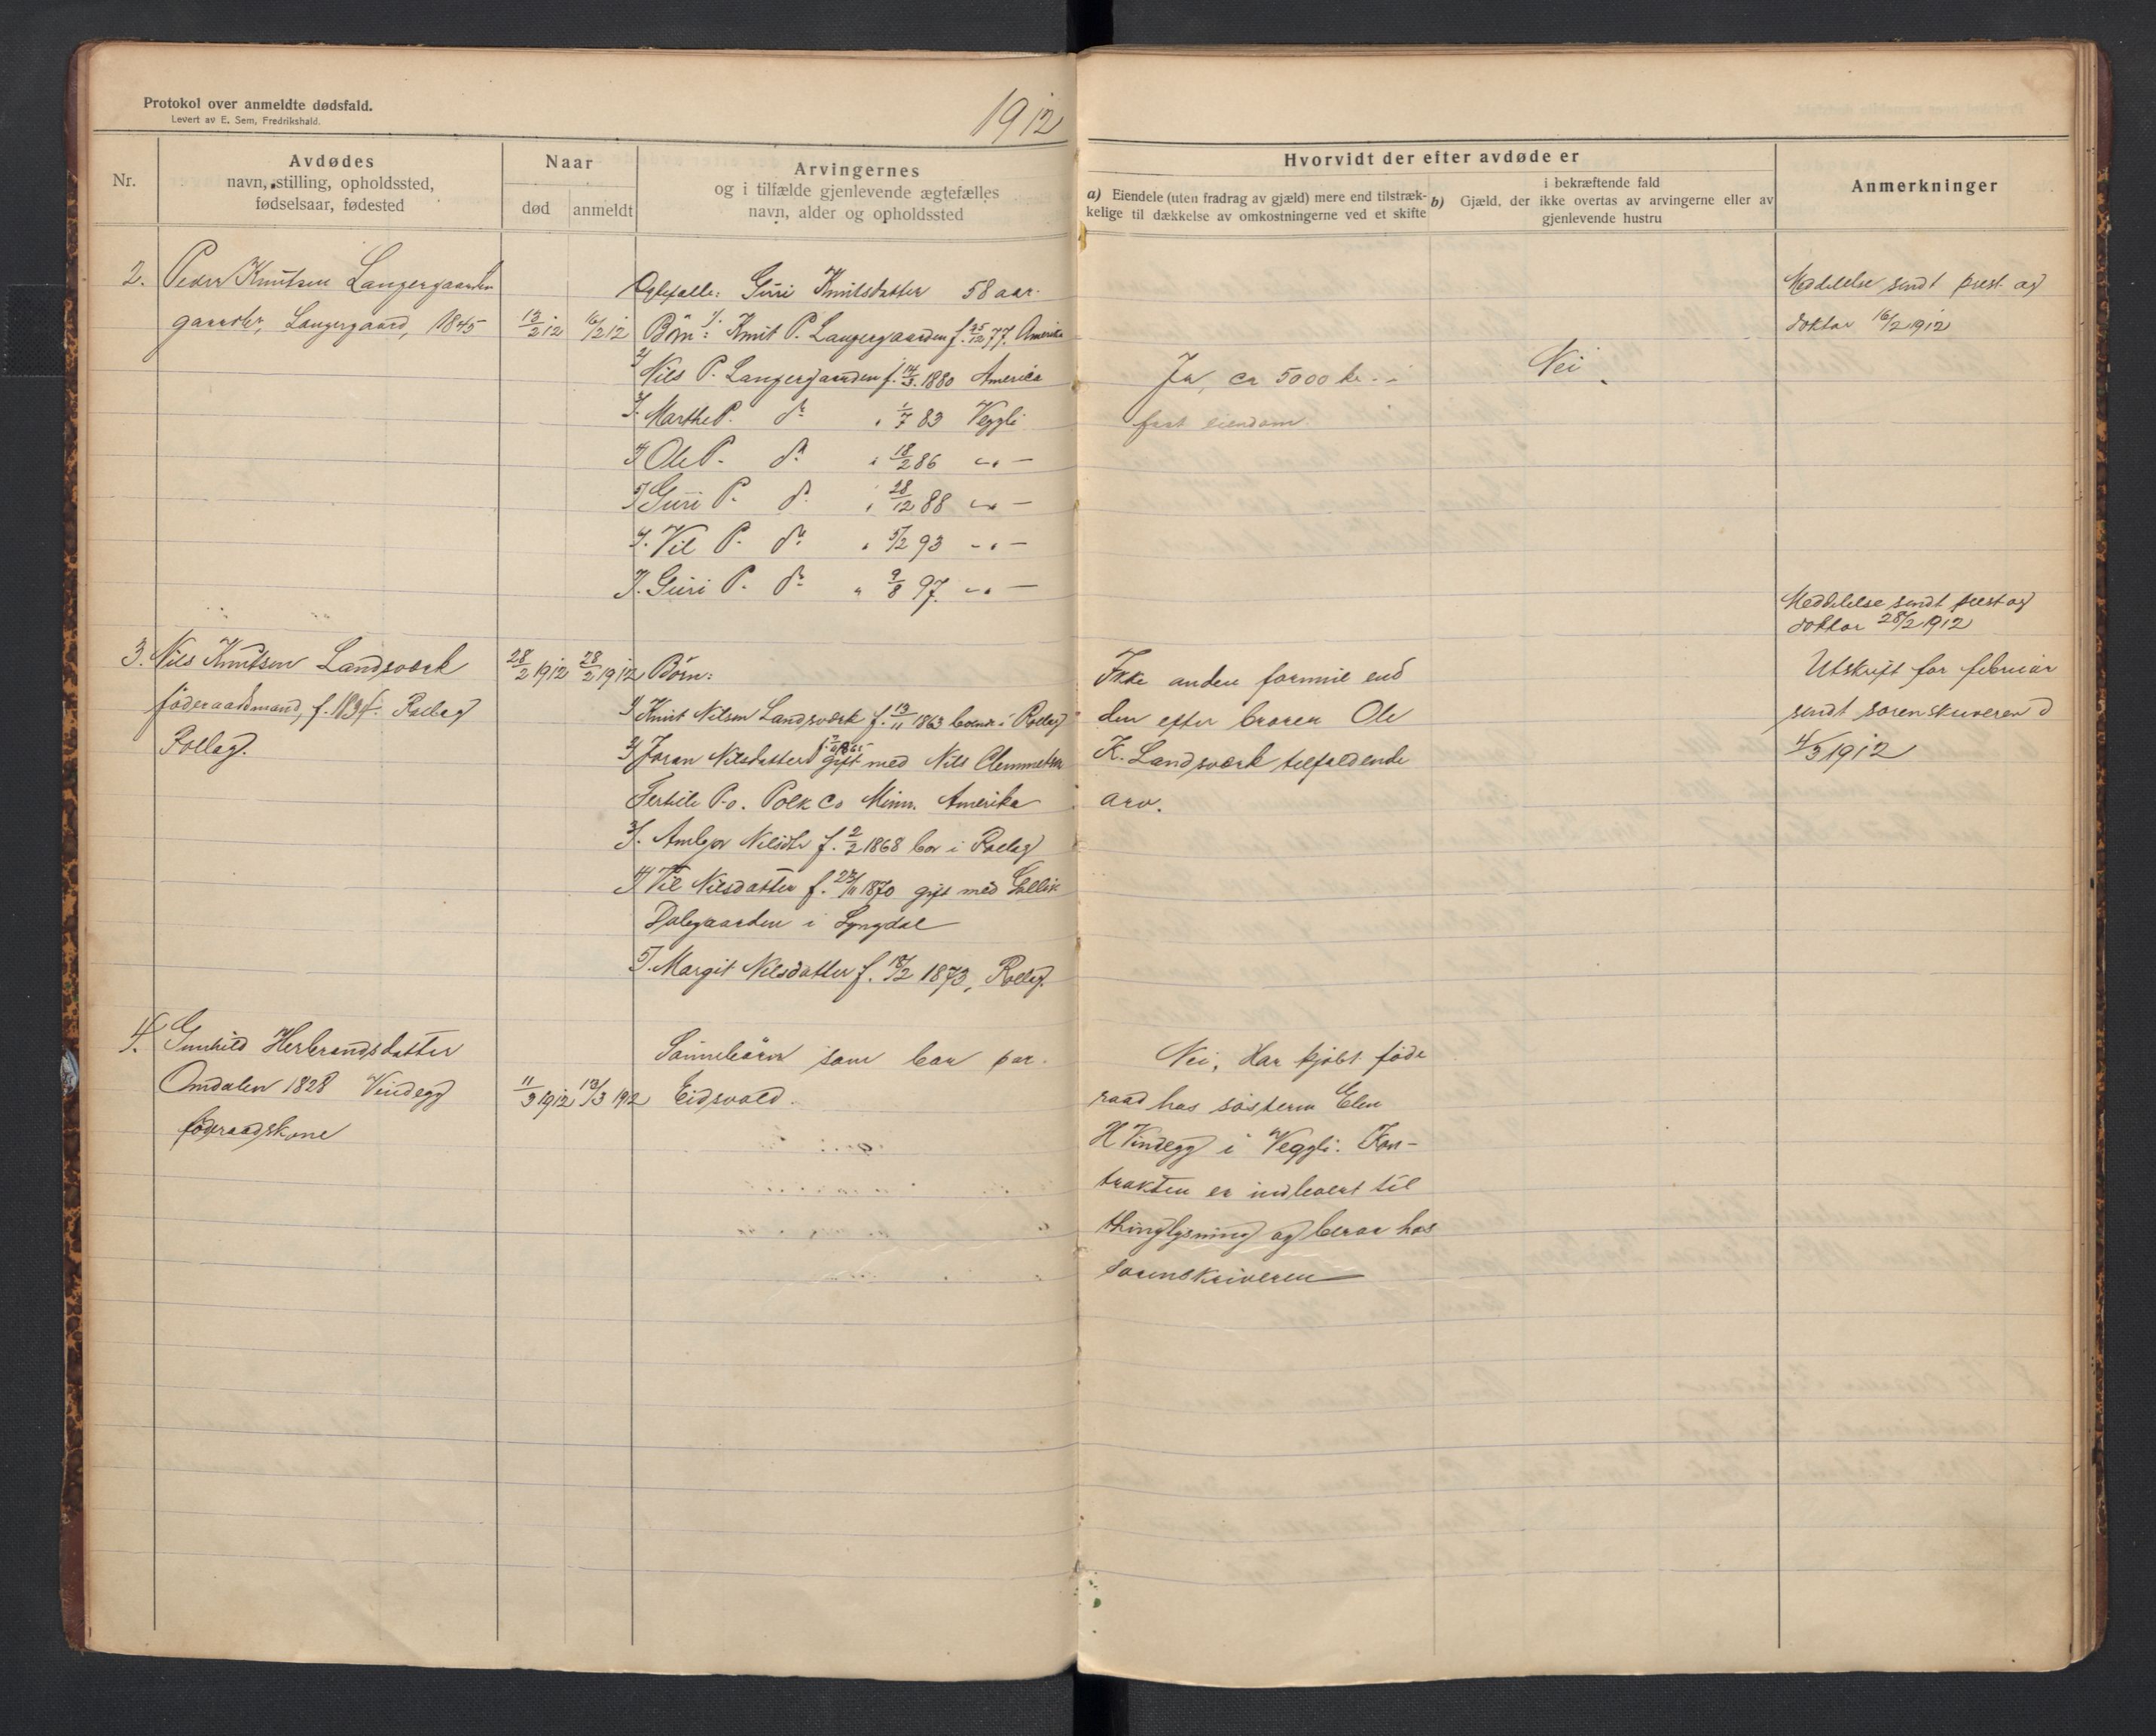 Protokol over anmeldte dødsfald.
Levert av E. Sem, Fredrikshald.
1912
Nr.
Avdødes
navn, stilling, opholdssted,
fødselsaar, fødested
Naar
død
anmeldt
Arvingernes
og i tilfælde gjenlevende ægtefælles
navn, alder og opholdssted
Hvorvidt der efter avdøde er
a) Eiendele (uten fradrag av gjæld) mere end tilstræk-
kelige til dækkelse av omkostningerne ved et skifte
i bekræftende fald
b) Gjæld, der ikke overtas av arvingerne eller av
gjenlevende hustru
Anmerkninger
2. Peder Knutsen Langergaarden
gaardbr, Langergaard, 1845
13/2 12
16/2 12
Ægtefælle: Guri Knutsdatter 58 aar.
Børn: 1/. Knut P. Langergaarden f. 25/12 77. Amerika
2/ Nils P. Langergaarden f. 14/3. 1880 America
3/. Marthe P. do " 1/7 83 Veggli
4/ Ole P. do " 18/2 86 -"-
5/ Guri P. do " 28/12 88 -"-
6/. Vil P. do " 5/2 93 -"-
7/. Guri P. do " 9/8 97. -"-
Ja, ca 5000 kr.
fast eiendom.
Nei
Meddelelse sendt prest og
doktor 16/2 1912
3. Nils Knutsen Landsværk
föderaadsmand, f. 1834. Rollag
Rollag.
28/2 1912
28/2 1912
Börn:
1/ Knut Nilsen Landsværk f. 13/11 1863 boende i Rollag
2/ Joran Nilsdatter gift med Nils Clemmetsen
Fertile P.o. Polk Co Minn. Amerika
3/. Ambjør Nilsdtr f. 2/2 1868 bor i Rollag
4/ Vil Nilsdatter f. 23/11 1870 gift med Gullik
Dalegaarden i Lyngdal
5/. Margit Nilsdatter f. 18/2 1873, Rollag.
Ikke anden formue end
den efter broren Ole
K. Landsværk tilfaldende
arv.
Meddelelse sendt prest og
doktor 28/2 1912
Utskrift for februar
sendt sorenskriveren d
4/3 1912
4. Gunhild Herbrandsdatter
Omdalen 1828 Vindegg
föderaadskone
11/3 1912
13/3 1912
Sönnebörn som bor paa
Eidsvold.
Nei. Har kjøbt föde
raad hos sösteren Elen
H Vindegg i Veggli. Kon-
trakten er indlevert til
thinglysning og beror hos
sorenskriveren